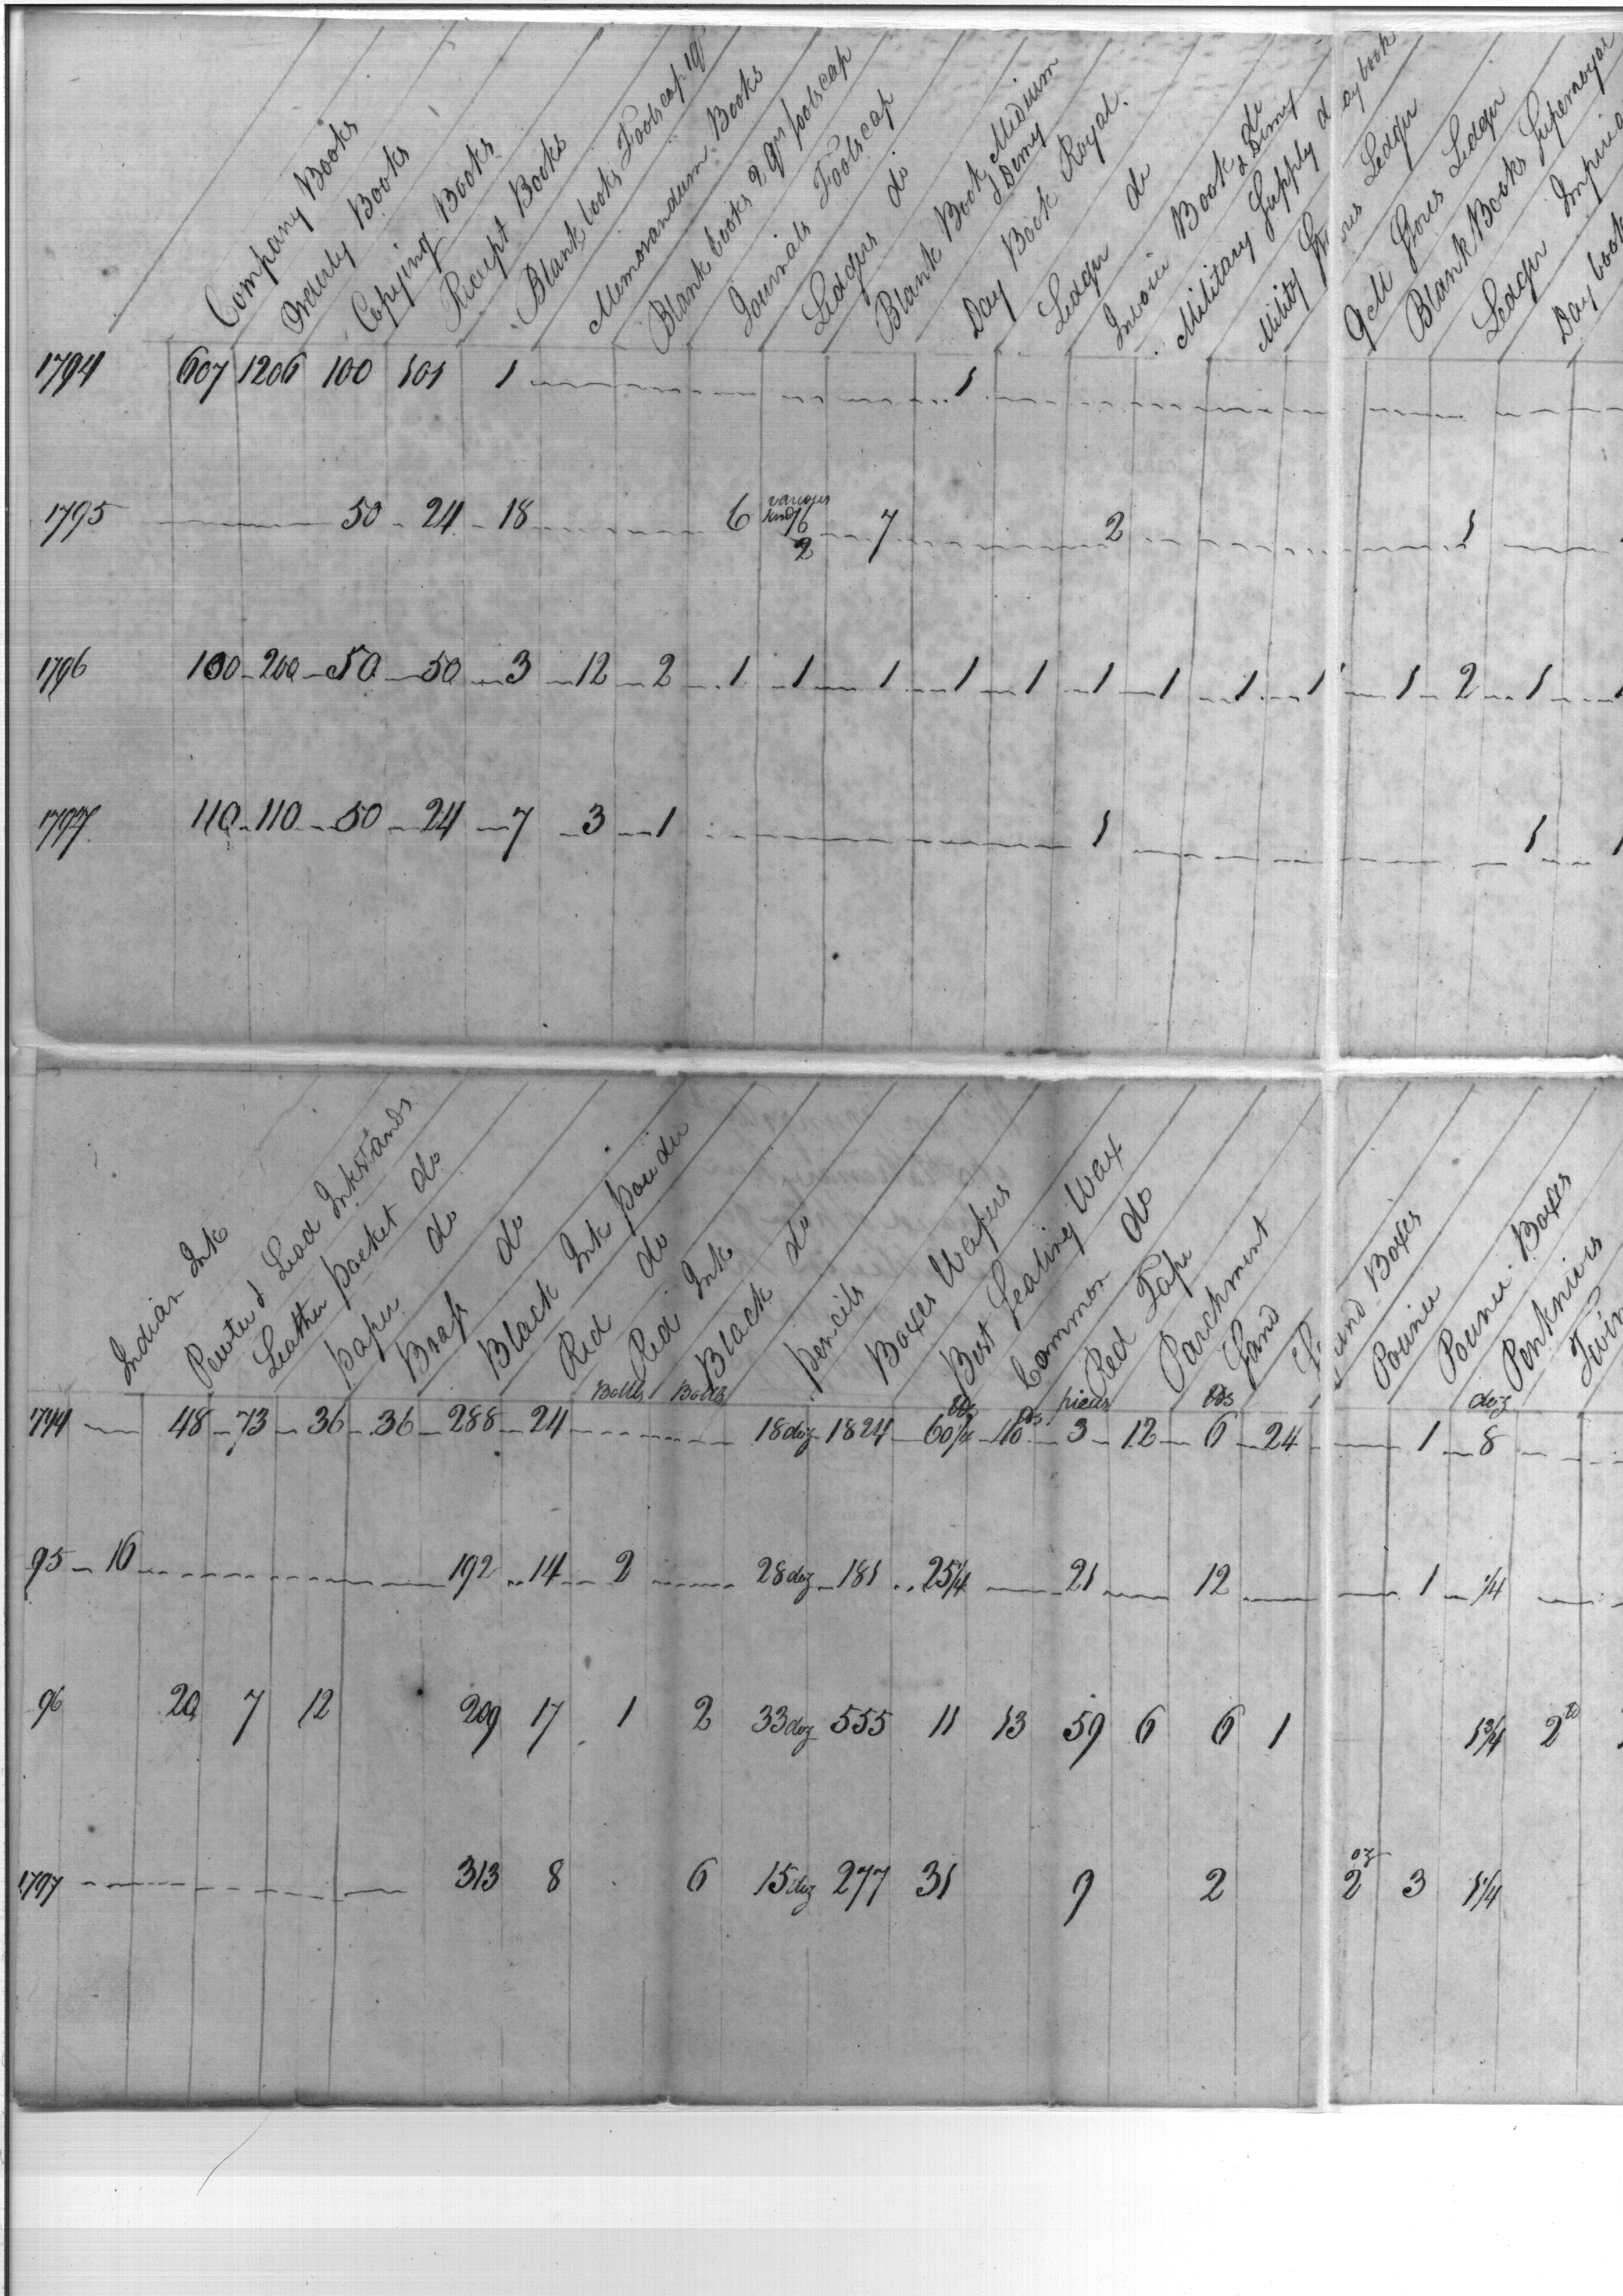 Company Books
Orderly Books
Copying Books
Receipt Books
Blank books Foolscap 1qr
Memorandum Books
Blank books 2 qrs foolscap
Journals Foolscap
Ledgers do
Blank Book Medium & Demy
Day Book Royal.
Ledger do
Invoice Book do & Demy
Military Supply daybook
Military Stores Ledger
QM Stores Ledger
Blank Books Superroyal
Ledger Imperial
Day book
1794 607 1206 100 101 1 1
1795 50 24 18 6 various kinds 6 2 7 2 1
1796 100 200 50 50 3 12 2 1 1 1 1 1 1 1 1 1 1 2 1 1
1797 110 110 50 24 7 3 1 1 1 1
Indian Ink
Pewter & Lead Inkstands
Leather pocket do
paper do
Brass do
Black Ink powder
Red do
Bottles Red Ink
Bottles Black do
pencils
Boxes Wafers
Best Sealing Wax
Common do
pieces Red Tape
Parchment
Sand
Sand Boxes
Pounce
Pounce Boxes
doz Penknives
1794 48 73 36 36 288 24 18 doz 1824 60 10 3 12 6 24 1 8
95 16 192 14 2 28 doz 181 25 1/4 21 12 1 1/4
96 20 7 12 209 17 1 2 33 doz 555 11 13 59 6 6 1 1 3/4 2
1797 313 8 6 15 doz 277 31 9 2 2 oz 3 1 1/4